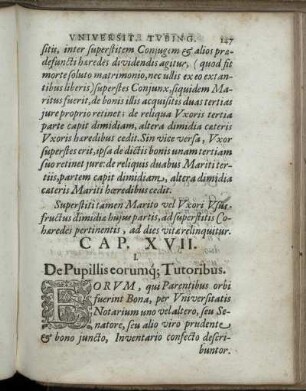 VNIVERSIT. TVBING. 147
sitis, inter superstitem Conjugem & alios præ-
defuncti hæredes dividendis agitur, (quod sit
morte soluto matrimonio, nec ullis ex eo extan-
tibus liberis) superstes Conjunx, siquidem Ma-
ritus fuerit, de bonis illis acquisitis duas tertias
jure proprio retinet: de reliqua Vxoris tertia
parte capit dimidiam, altera dimidia cæteris
Vxoris hæredibus cedit. Sin vice versa, Vxor
superstes erit, ipsa de dictis bonis unam tertiam
suo retinet jure: de reliquis duabus Mariti ter-
tiis, partem capit dimidiam, altera dimidia
cæteris Mariti hæredibus cedit.
Superstiti tamen Marito vel Vxori Vsus-
fructus dimidiæ hujus partis, ad superstitis Co-
hæredes pertinentis, ad dies vitæ relinquitur.
CAP. XVII.
I.
De Pupillis eorumq; Tutoribus.
EORVM, qui Parentibus orbi
fuerint Bona, per Vniversitatis
Notarium uno vel altero, seu Se-
natore, seu alio viro prudente
& bono juncto, Inventario confecto descri-
buntor.